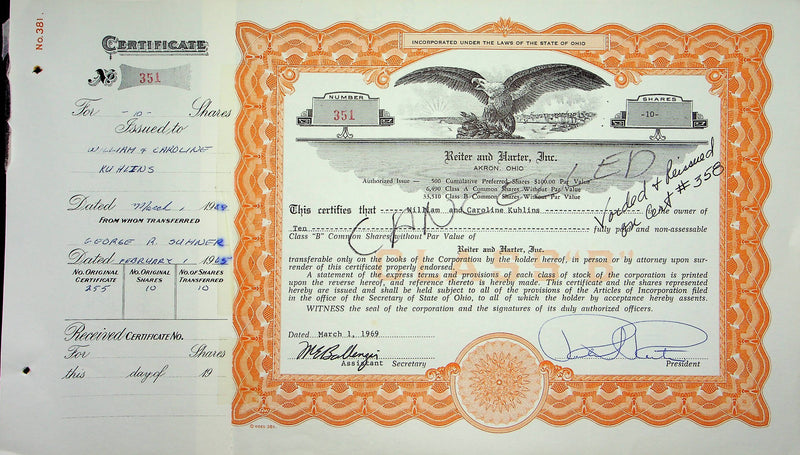 No. 381.
CERTIFICATE
No 351
For -10- Shares
Issued to
WILLIAM & CAROLINE
KUHLINS
Dated March 1, 19
FROM WHOM TRANSFERRED
GEORGE R. SUMNER
Dated FEBRUARY 1 1965
NO. ORIGINAL CERTIFICATE NO. ORIGINAL SHARES NO. OF SHARES TRANSFERRED
255 10 10
Received CERTIFICATE NO.
For Shares
this day of 19
INCORPORATED UNDER THE LAWS OF THE STATE OF OHIO
NUMBER
351
SHARES
-10-
Reiter and Harter, Inc.
AKRON, OHIO
Authorized Issue — 500 Cumulative Preferred Shares $100.00 Par Value
6,490 Class A Common Shares Without Par Value
33,510 Class B Common Shares Without Par Value
CANCELLED
Voided & Reissued
on Cert # 358
This certifies that ----- William and Caroline Kuhlins ----- the owner of
Ten ----- fully paid and non-assessable
Class "B" Common Shares without Par Value of
Reiter and Harter, Inc.
CLASS "B"
transferable only on the books of the Corporation by the holder hereof, in person or by attorney upon sur-
render of this certificate properly endorsed.
A statement of the express terms and provisions of each class of stock of the corporation is printed
upon the reverse hereof, and reference thereto is hereby made. This certificate and the shares represented
hereby are issued and shall be held subject to all of the provisions of the Articles of Incorporation filed
in the office of the Secretary of State of Ohio, to all of which the holder by acceptance hereby assents.
WITNESS the seal of the corporation and the signatures of its duly authorized officers.
Dated March 1, 1969
Assistant Secretary
President
© GOES 381.